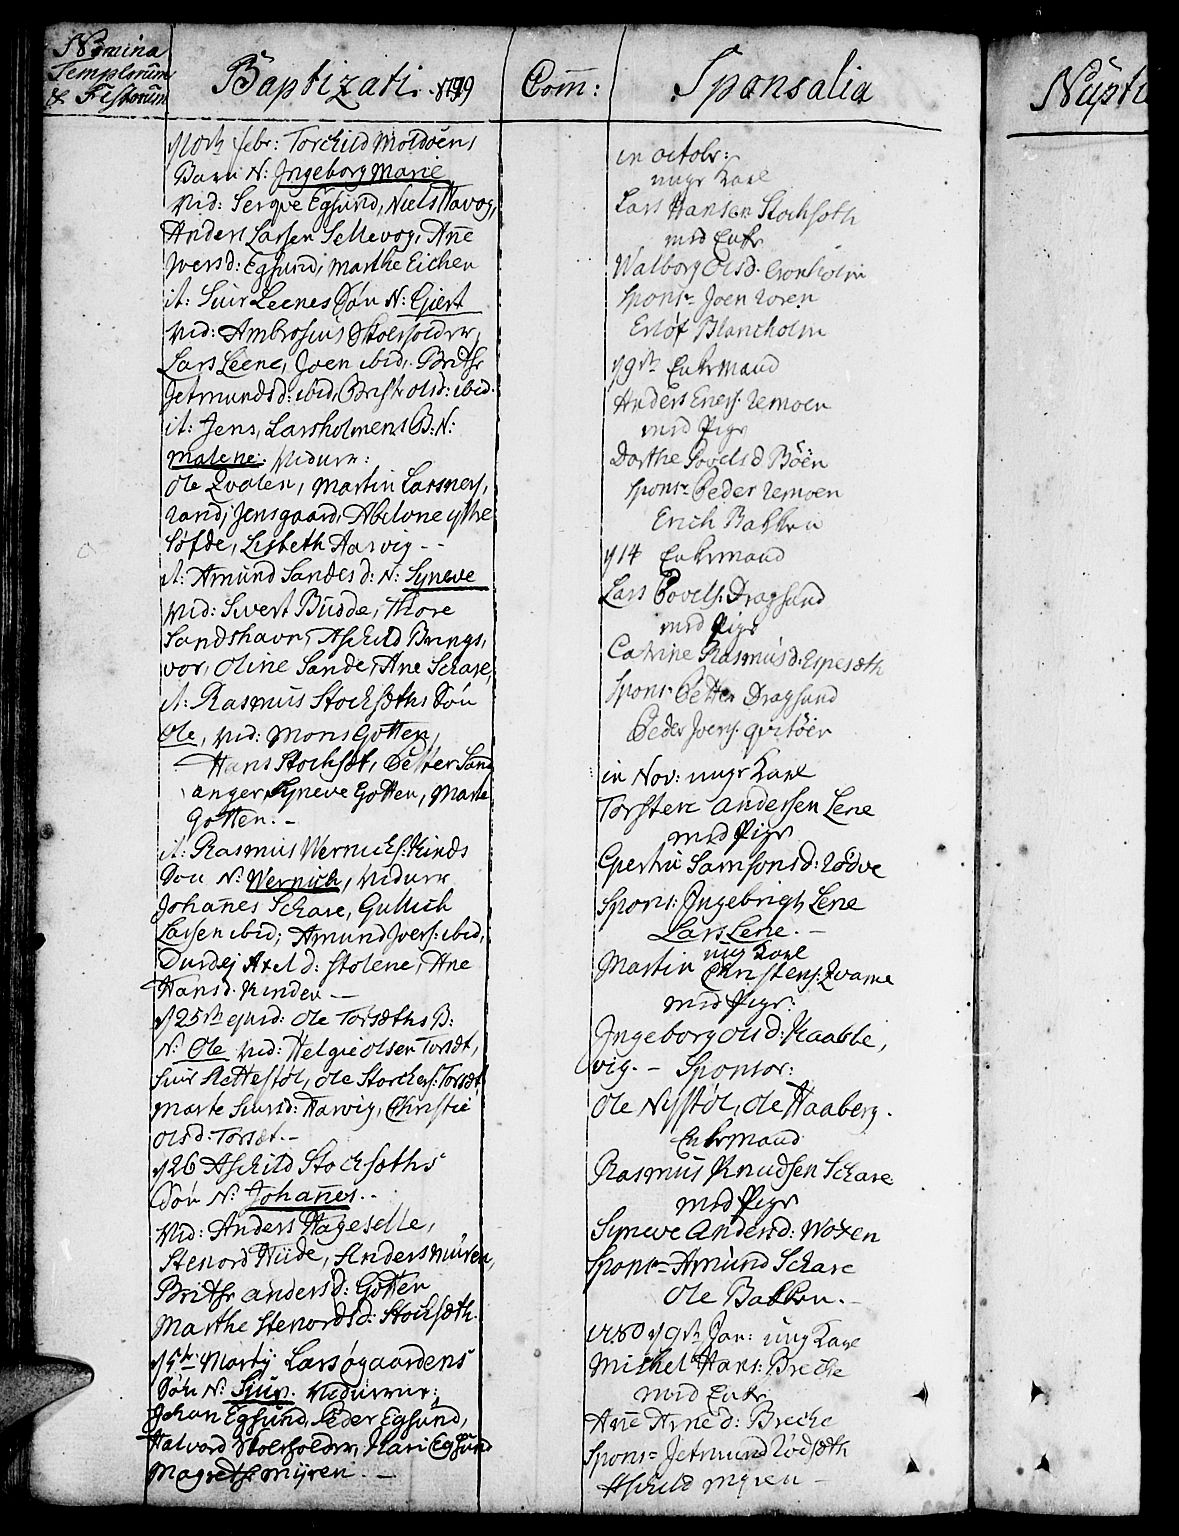 Nomina
Templorum
& Festorum
Baptizati
Com̄:
Sponsalia
Nupti
febr: Torchild Moldöens
Barn N: Ingeborg Marie
Vid: Serque Egsund, Niels Havog,
Anders Larsen Sellevog, Ane
Iversd: Egsund, Marthe Eichen
it: Siur Leenes Sön N: Giert
Vid: Ambrosius Skolsholdr,
Lars Leene, Joen ibid, Brithe
Jetmundsd: ibid, Brith olsd: ibid.
it: Jens Larsholmens B: N:
Malene. Vidner:
Ole Qvalen, Martin Larsnes,
Rand: Jensgaard, Abelone ythre
Löfde, Lisbeth Aarvig --
it: Amund Sandes d: N: Syneve
Vid: Sivert Budde, Thore
Sandshavn, Aschild Brings,
vor, Oline Sande, Ane Schare,
it: Rasmus Stochsæths Sön
Ole, Vid: Mons Gotten,
Hans Stochsæt, Petter Sand
anger, Syneve Gotten, Marte
Gotten. -
it: Rasmus Wernichs: Kinds
Sön N: Wernich, Vidner
Johannes Schare, Gullich
Larsen ibid; Amund Ivers: ibid,
Durdej Axel d: Stolene, Ane
Hansd. Kinden -
d 25th ejusd: Ole Torsæths B:
N: Ole Vid: Helgie Olsen Torsæt,
Siur Rettestöl, Ole Storchers: Torsæt
Marte Siursd: Harvig, Christie
Olsd: Torsæt. -
d 26 Aschild Stochsæths
Sön N: Johannes. -
Vid: Anders Hageselle,
Stenord Hiide, Anders Müren,
Brithe Andersd: Gotten
Marthe Stenordsd: Stochsæth.
d 5th Martij Lars Ögaardens
Sön N: Siur. Vidnerne:
Johan Egsund, Peder Egsund,
Halvord Skolsholdr, Kari Egsund
Magrethe Myren. -
in octobr:
ungr Karl
Lars Hansen Stochsæth
med Enke
Walborg Olsd.
Spons: Joen Voren
Erlöf Blancholm
d 9de Enkemand
Anders Eners: Remoen
med Pige
Dorthe Povelsd Böen
Spons: Peder Remoen
Erich Bakken
d 14 Enkemand
Lars Povels. Dragsund
med Pige
Catrine Rasmusd. Espesæth
Spons: Petter Dragsund
Peder Ivers: qvitöen
in Nov: ungr Karl
Torsten Andersen Lene
med Pige
Giertru Samsonsd: Rödve
Spons: Ingebrigt Lene
Lars Lene. -
ung Karl
Martin Christens: Qvame
med Pige:
Ingeborg Olsd: Kaabbe,
vig. - Sponsor:
Ole Nystöl, Ole Haaberg.
Enkemand
Rasmus Knudsen Schare
med Pige
Syneve Andersd: Voxen
Spons: Amund Schare
Ole Bakken. -
d 9th Jan: ung Karl
Michel Hans: Breche
med Enke
Ane Arne d: Breche
Spons: Jetmund Rödsæth
Aschild Myren -